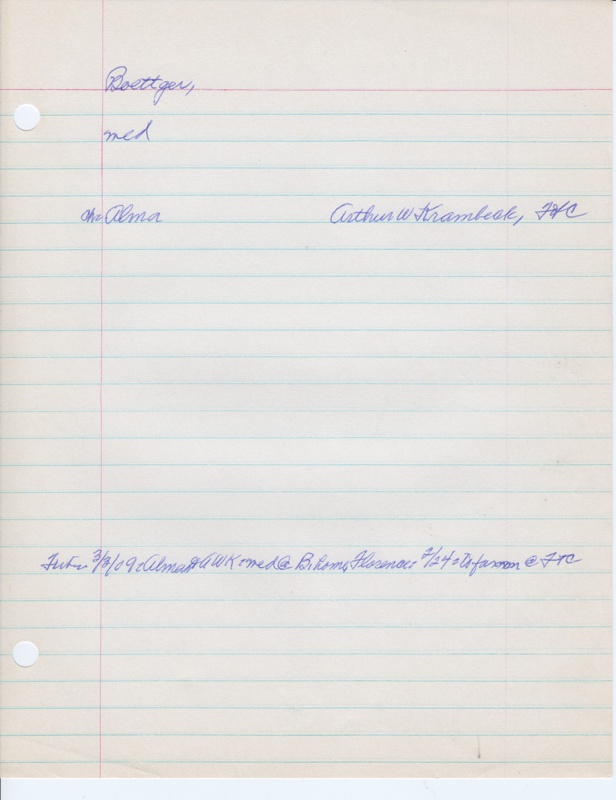 Boettger,
med
ch: Alma Arthur W Krambeck, FtC
3/3/09: Alma & AWK med @ B. home, Florence: 2/24: to farm @ FtC